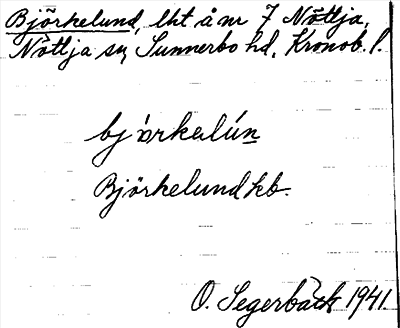 Björkelund, lht å nr 7 Nöttja,
Nöttja sn, Sunnerbo hd, Kronob. l.
bjö̀rkalún
Björkelund kb.
O. Segerbäck 1941